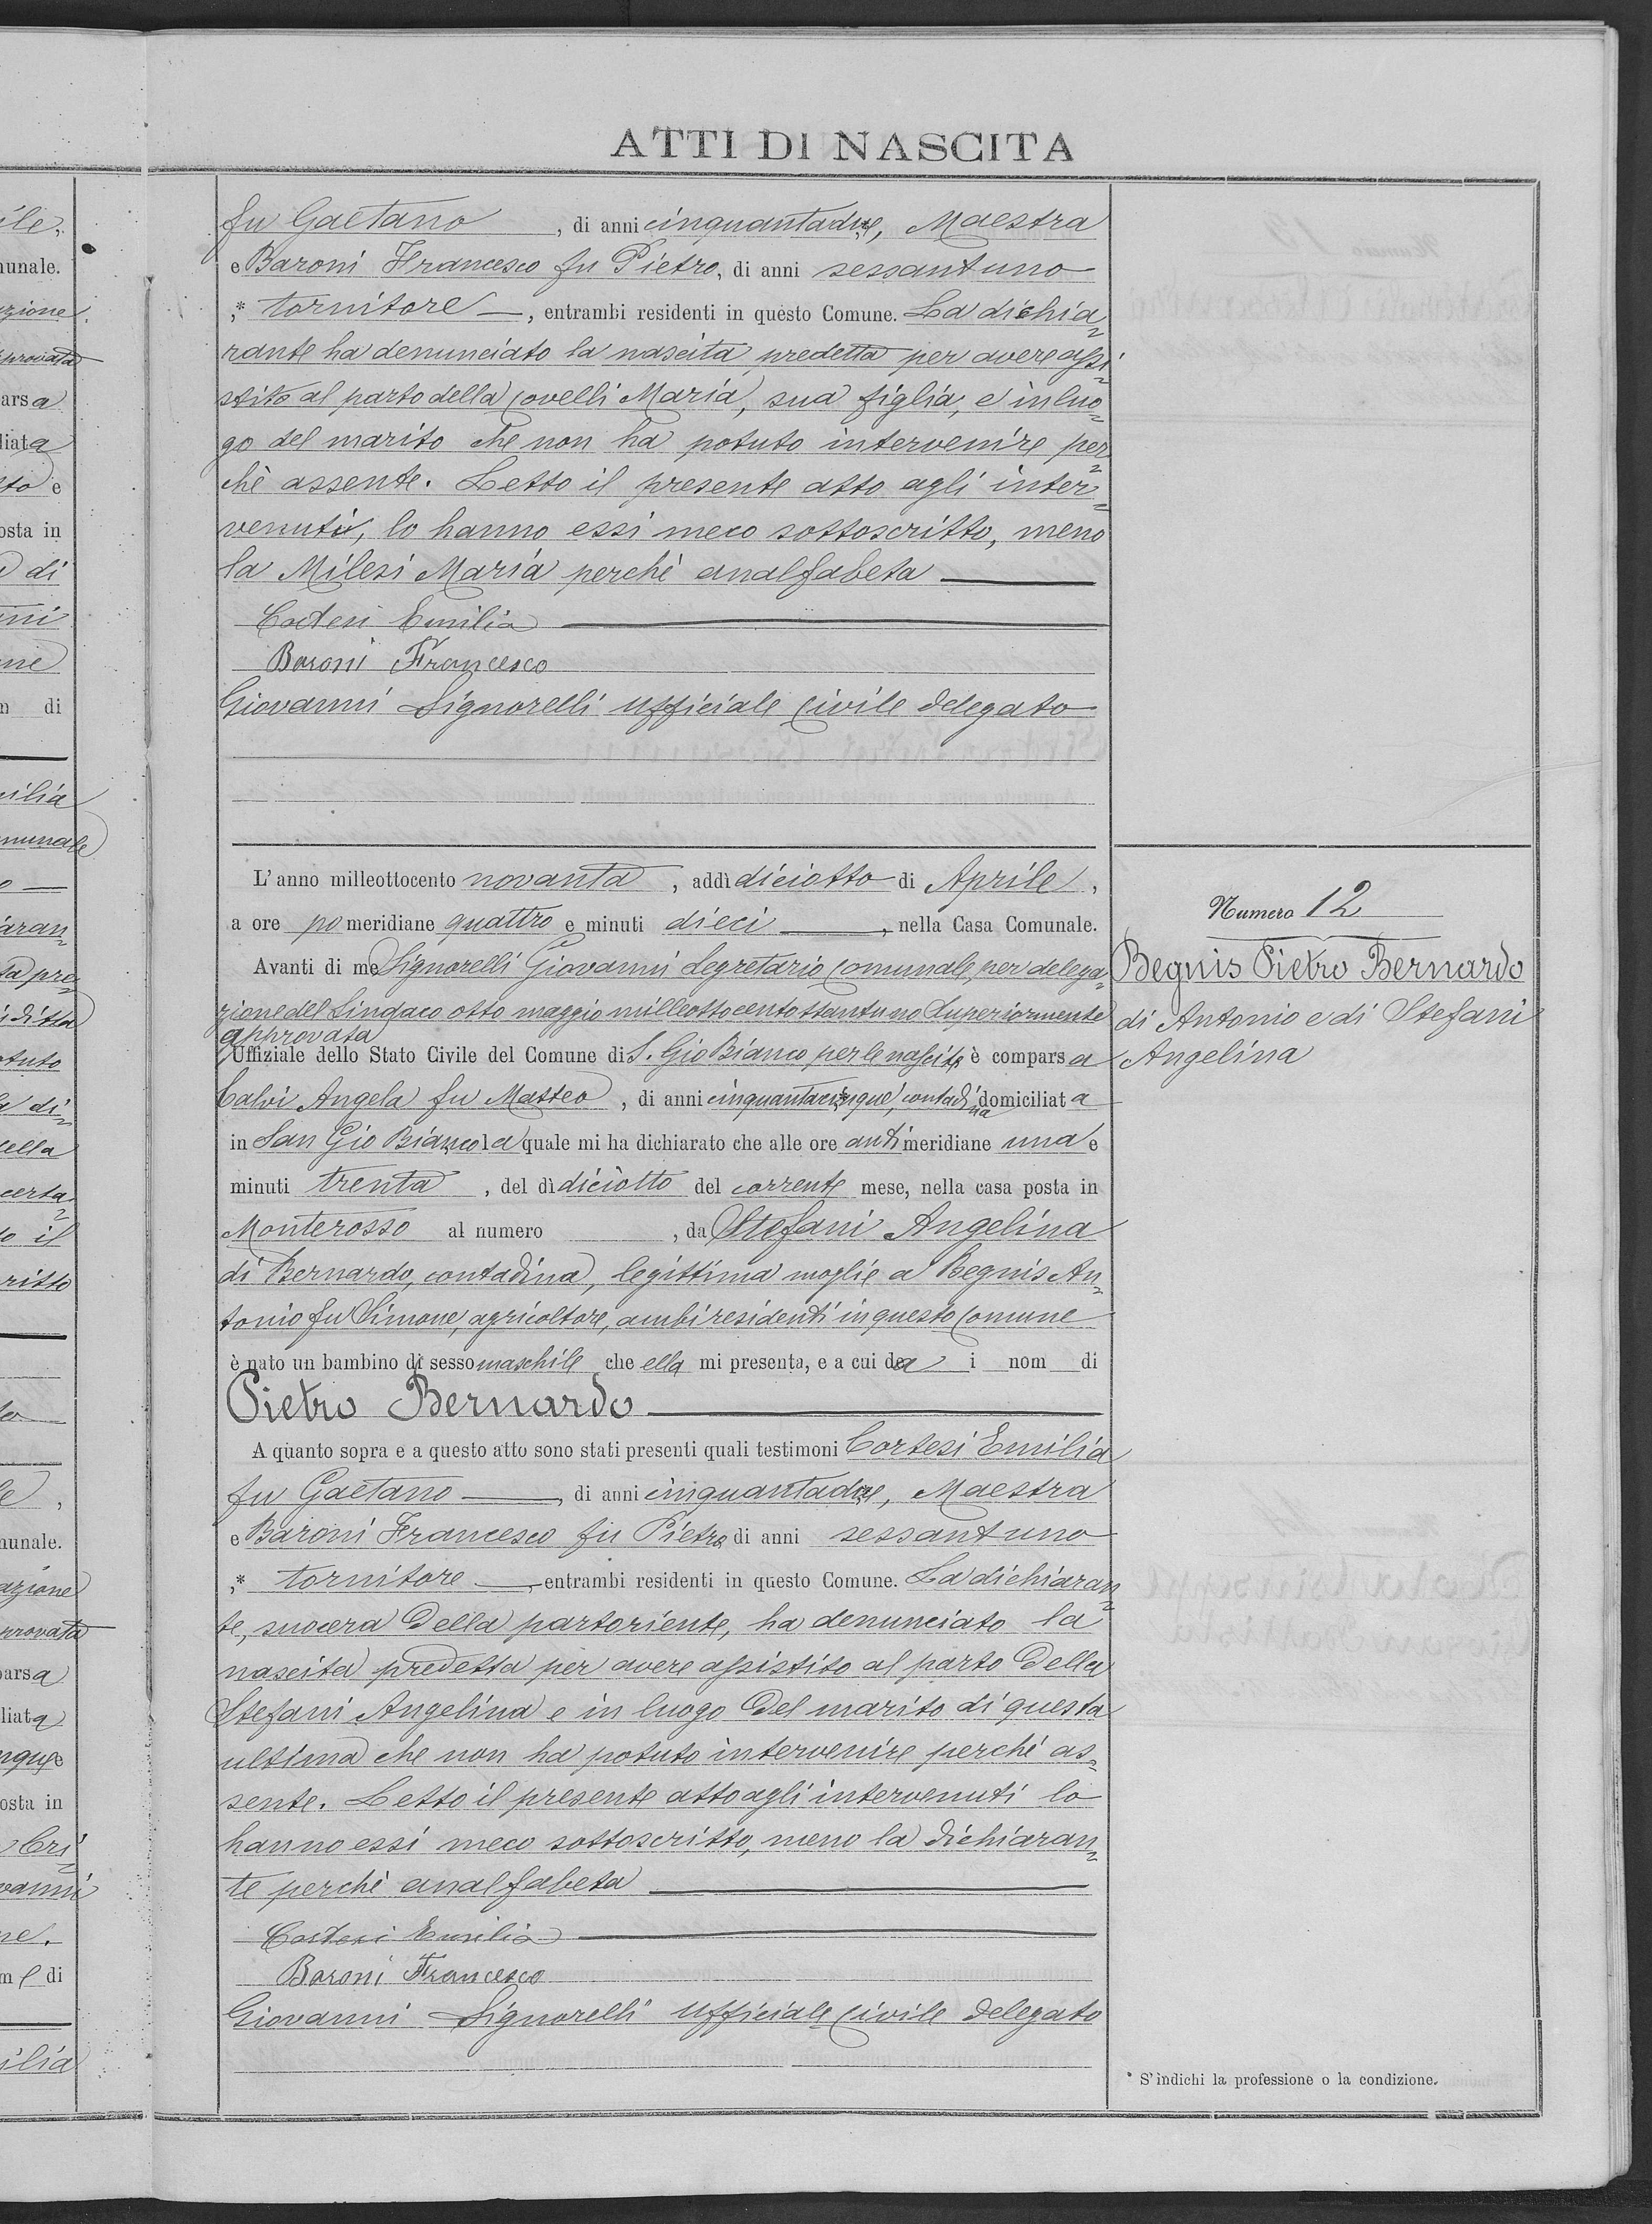 ATTI DI NASCITA
fu Gaetano, di anni cinquantadue, Maestra
e Baroni Francesco fu Pietro, di anni sessantuno
,* tornitore —, entrambi residenti in questo Comune. La dichia=
rante ha denunciato la nascita predetta per avere assi=
stito al parto della Covelli Maria, sua figlia, e in luo=
go del marito che non ha potuto intervenire per=
chè assente. Letto il presente atto agli inter=
venuti, lo hanno essi meco sottoscritto, meno
la Milesi Maria perchè analfabeta —
Cortesi Emilia —
Baroni Francesco
Giovanni Signorelli Ufficiale Civile delegato
L'anno milleottocento novanta, addì diciotto di Aprile,
a ore pomeridiane quattro e minuti dieci —, nella Casa Comunale.
Avanti di me Signorelli Giovanni Segretario Comunale, per delega=
zione del Sindaco otto maggio milleottocentottantuno Superiormente
approvata
Uffiziale dello Stato Civile del Comune di S. Gio Bianco per le nascite è comparsa
Calvi Angela fu Matteo, di anni cinquantacinque, contadina domiciliata
in San Gio Bianco la quale mi ha dichiarato che alle ore antimeridiane una e
minuti trenta, del dì diciotto del corrente mese, nella casa posta in
Monterosso al numero , da Stefani Angelina
di Bernardo, contadina, legittima moglie a Begnis An=
tonio fu Simone, agricoltore, ambi residenti in questo Comune
è nato un bambino di sesso maschile che ella mi presenta, e a cui da i nom di
Pietro Bernardo —
A quanto sopra e a questo atto sono stati presenti quali testimoni Cortesi Emilia
fu Gaetano —, di anni cinquantadue, Maestra
e Baroni Francesco fu Pietro di anni sessantuno
,* tornitore —, entrambi residenti in questo Comune. La dichiaran=
te, suocera della partoriente, ha denunciato la
nascita predetta per avere assistito al parto della
Stefani Angelina e in luogo del marito di questa
ultima che non ha potuto intervenire perchè as=
sente. Letto il presente atto agli intervenuti lo
hanno essi meco sottoscritto, meno la dichiaran=
te perchè analfabeta —
Cortesi Emilia —
Baroni Francesco
Giovanni Signorelli Ufficiale Civile delegato
Numero 12
Begnis Pietro Bernardo
di Antonio e di Stefani
Angelina
* S'indichi la professione o la condizione.